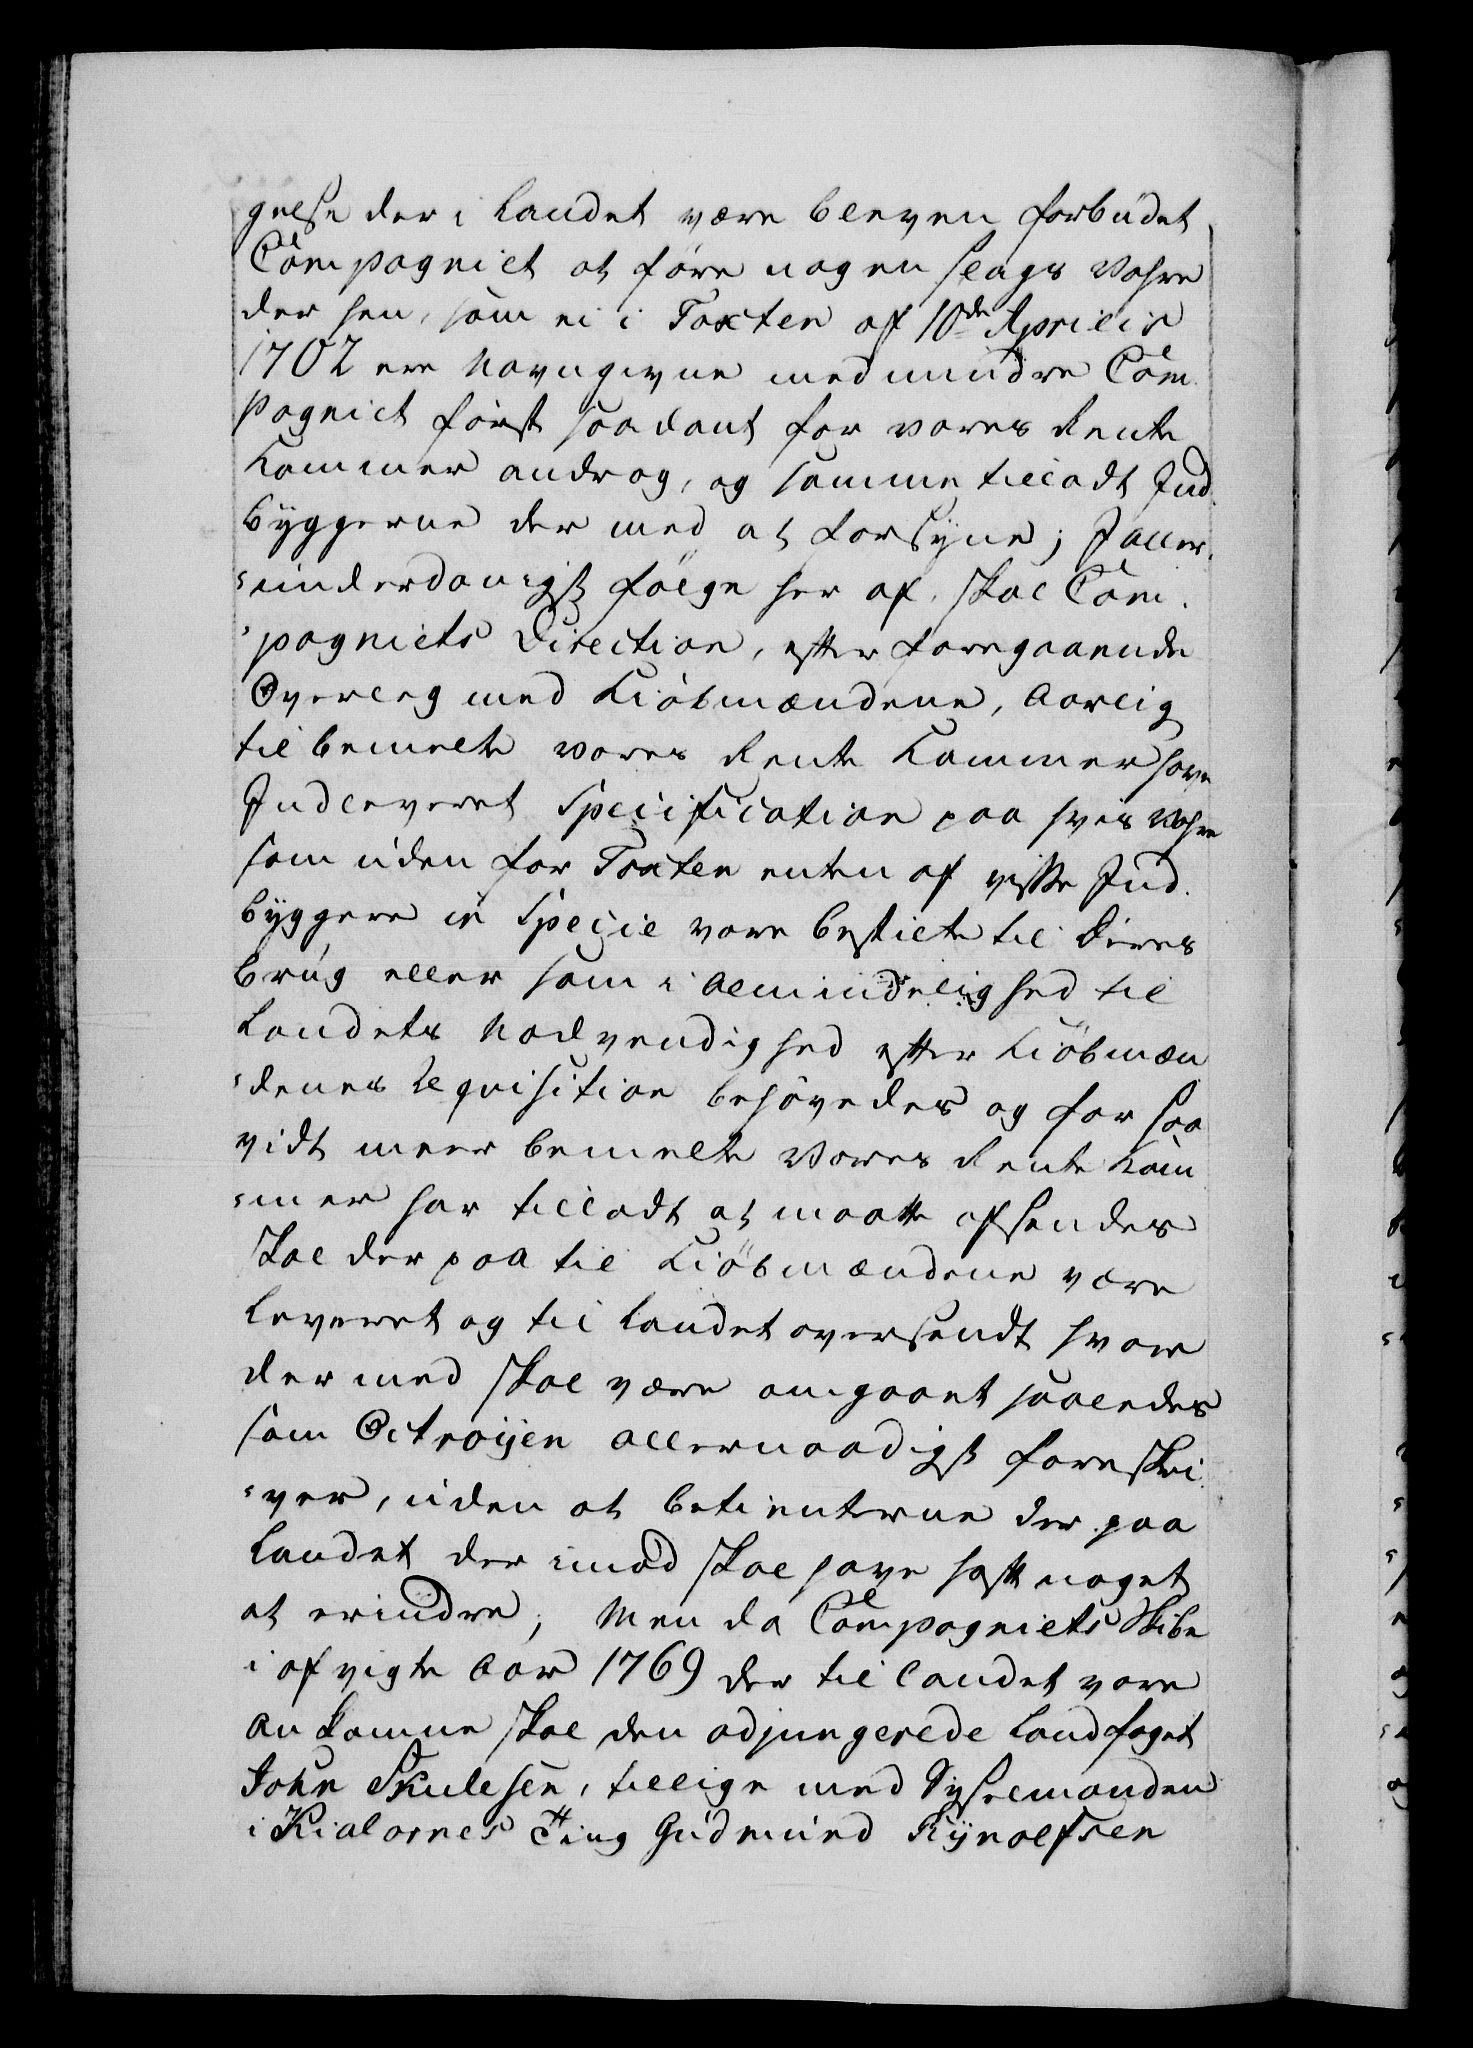 gelse der i Landet være bleven forbudet
Compagniet at före nogen slags Vahre
der hen, som ei i Taxten af 10de Aprilis
1702 ere Navngivne medmindre Com
pagniet först saadant for vores Rente
Kammer androg, og samme tillodt Ind
byggerne der med at forsÿne; I aller-
underdanigst fölge her af, skal Com-
pagniets Direction, efter foregaaende
Overleg med Kiöbmændene, Aarlig
til bemelte vores Rente Kammer have
Indleveret Specification paa hvis Vahre
som uden for Taxten enten af visse Ind-
byggere in Specie vare bestilte til Deres
brug eller som i Almindelighed til
Landets Nodvendighed efter Kiöbmæn
denes Reqvisition behövedes og for saa
vidt meer bemelte Vores Rente Kam
mer har tilladt at maatte afsendes
skal der paa til Kiöbmændene være
leveret og til Landet oversendt hvor
der med skal være omgaaet saaledes
som Octroÿen allernaadigst foreskri-
ver, uden at betienterne der paa
Landet der imod skal have haft noget
at erindre; Men da Compagniets Skibe
i afvigte Aar 1769 der til Landet vare
ankomne skal den adjungerede Landfoget
John Skulesen, tillige med Sysselmanden
i Kialarnes Ting Gudmund Rÿnolfsen